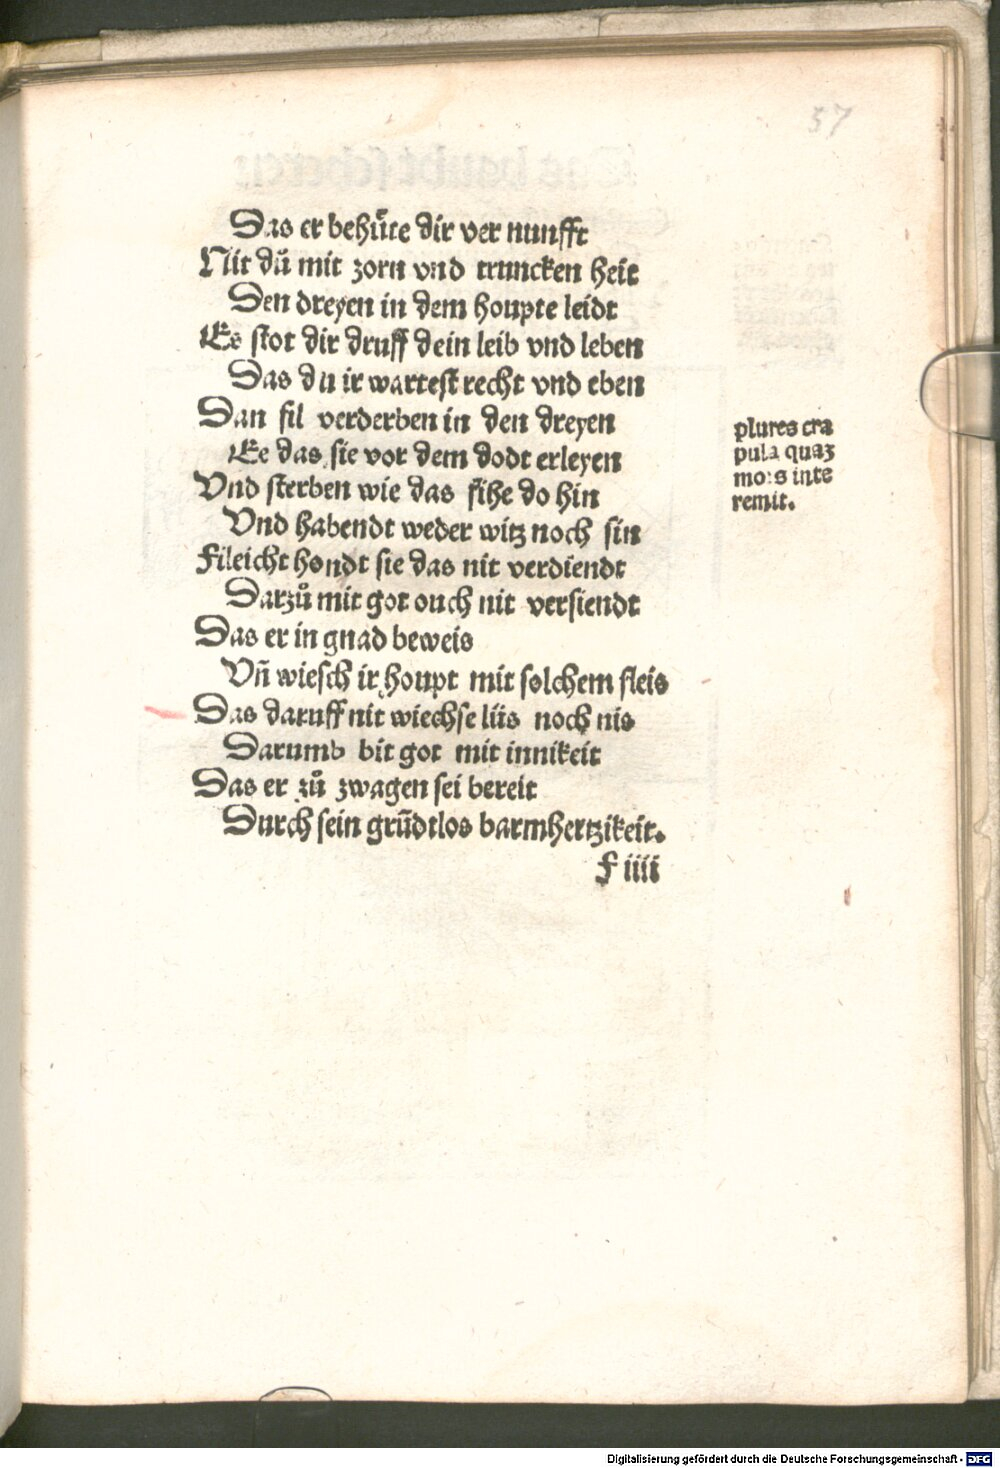 57
Das er behüte dir ver nunfft
Nit dů mit zorn vnd truncken heit
Den dreyen in dem houpte leidt
Es stot dir druff dein leib vnd leben
Das du ir wartest recht vnd eben
Dan fil verderben in den dreyen
Ee das sie vor dem dodt erleyen
Vnd sterben wie das fihe do hin
Vnd habendt weder witz noch sin
Fileicht hondt sie das nit verdiendt
Darzů mit got ouch nit versiendt
Das er in gnad beweis
Vñ wiesch ir houpt mit solchem fleis
Das daruff nit wiechse lüs noch nis
Darumb bit got mit innikeit
Das er zů zwagen sei bereit
Durch sein grũdtlos barmhertzikeit.
F iiii
plures cra
pula quaʒ
mors inte
remit.
Digitalisierung gefördert durch die Deutsche Forschungsgemeinschaft - DFG